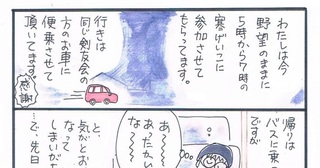 わたしは今
野望のままに
5時から7時の
寒げいこに
参加させて
もらってます。
行きは
同じ剣友会の
方のお車に
便乗させて
頂いてます。
感謝
帰りは
バスに乗
ですが
あ〜
あったかい
な〜
と、
気がとお
なって
しまいが
で、先日